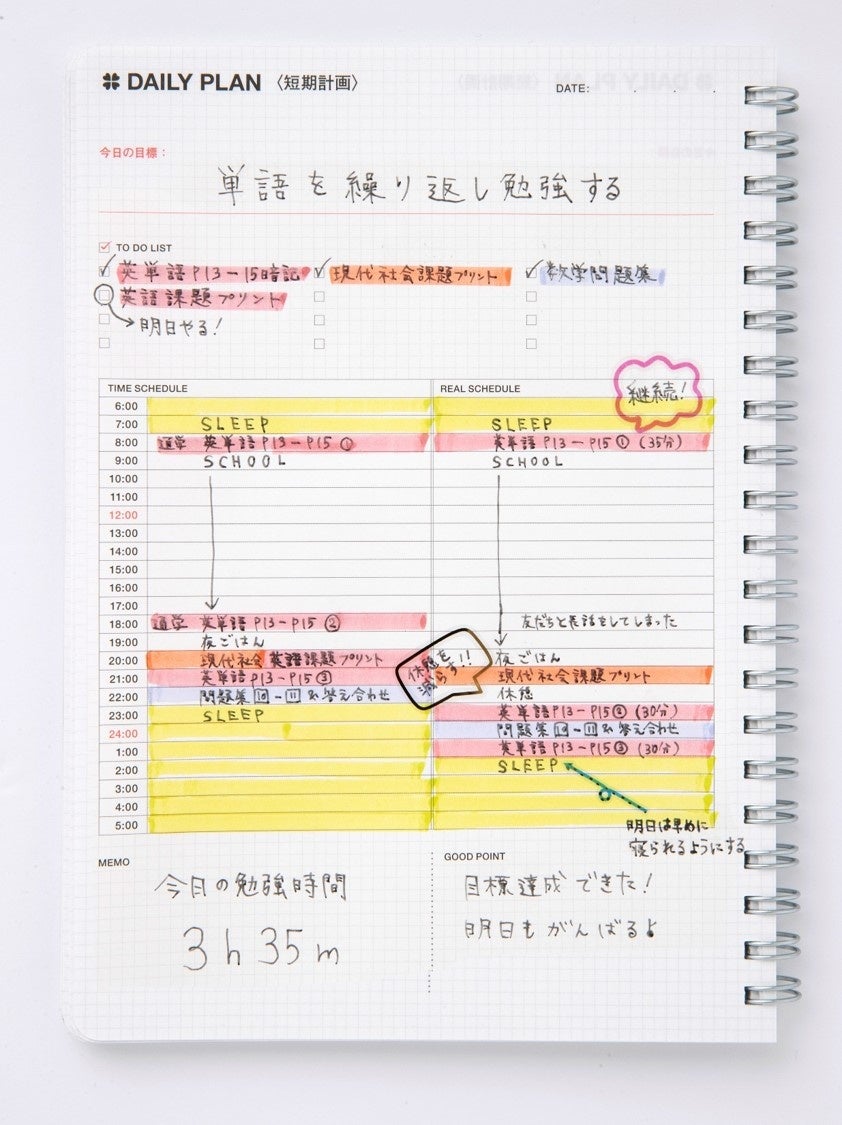 DAILY PLAN 〈短期計画〉
DATE: . . .
今日の目標：
単語を繰り返し勉強する
TO DO LIST
英単語P13－15暗記 現代社会課題プリント 数学問題集
英語課題プリント
明日やる！
TIME SCHEDULE REAL SCHEDULE
継続！
6:00
7:00 SLEEP SLEEP
8:00 通学 英単語P13－P15① 英単語P13－P15①(35分)
9:00 SCHOOL SCHOOL
10:00
11:00
12:00
13:00
14:00
15:00
16:00
17:00
18:00 通学 英単語P13－P15② 友だちと長話をしてしまった
19:00 夜ごはん
20:00 現代社会 英語課題プリント 夜ごはん
休憩を
減らす!!
21:00 英単語P13－P15③ 現代社会課題プリント
22:00 問題集10－11&答え合わせ 休憩
23:00 SLEEP 英単語P13－P15②(30分)
24:00 問題集10－11&答え合わせ
1:00 英単語P13－P15③(30分)
2:00 SLEEP
3:00
4:00
5:00
明日は早めに
寝られるようにする
MEMO
今日の勉強時間
3h35m
GOOD POINT
目標達成できた！
明日もがんばるよ